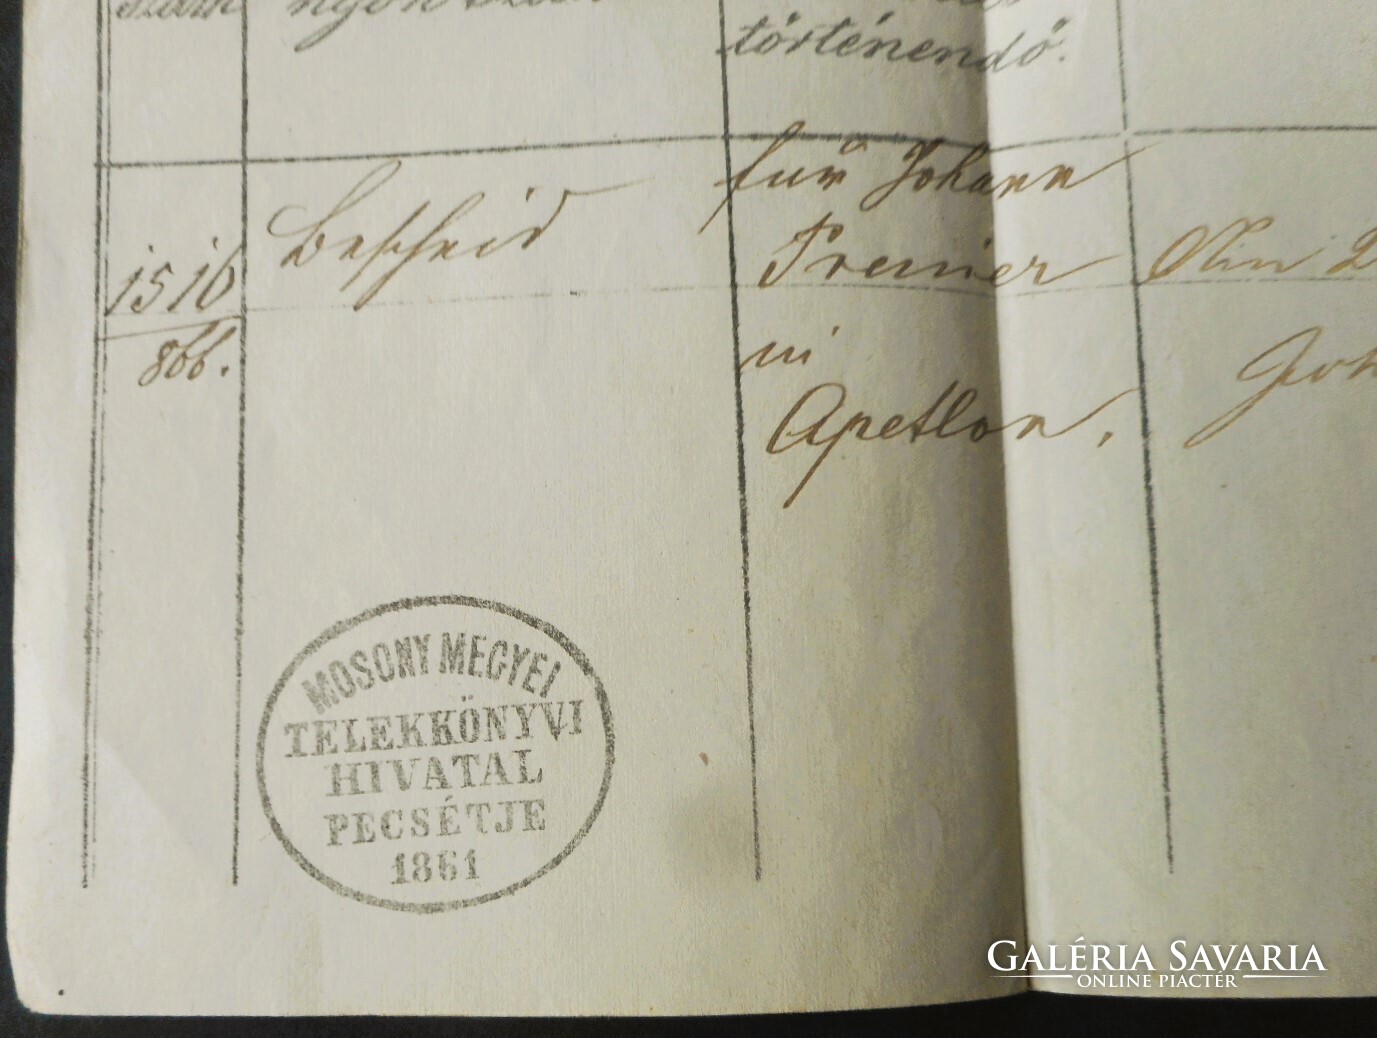 történendő.
1516
866.
Bescheid
für Johann
in
Apetlon.
MOSONY MEGYEI
TELEKKÖNYVI
HIVATAL
PECSÉTJE
1861
GALÉRIA SAVARIA
ONLINE PIACTÉR